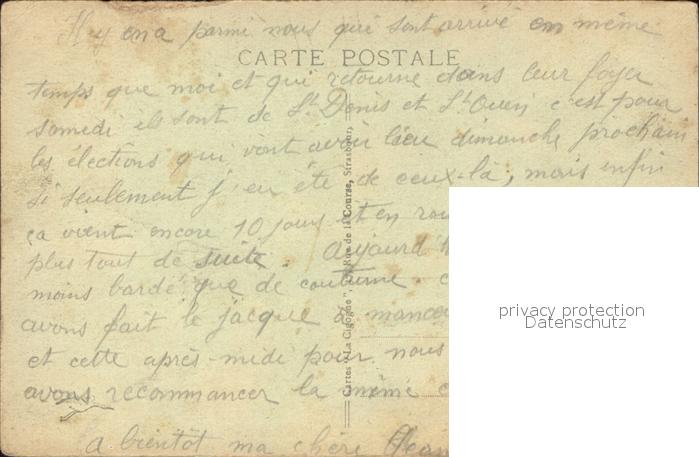 Il y en a parmi nous qui sont arrivé en même
CARTE POSTALE
temps que moi et qui retourne dans leur foyer
samedi ils sont de St Denis et St Ouen c'est pour
les élections qui vont avoir lieu dimanche prochain
si seulement j'en été de ceux-là, mais enfin
ça vient encore 10 jours et en
plus tout de suite. aujourd'h
moins bardé que de coutume.
avons fait le jacque
et cette après-midi pour nous
avons recommancer la même
a bientôt ma chère
Cartes "La Cigogne", Rue de la Course, Strasbourg.
privacy protection
Datenschutz